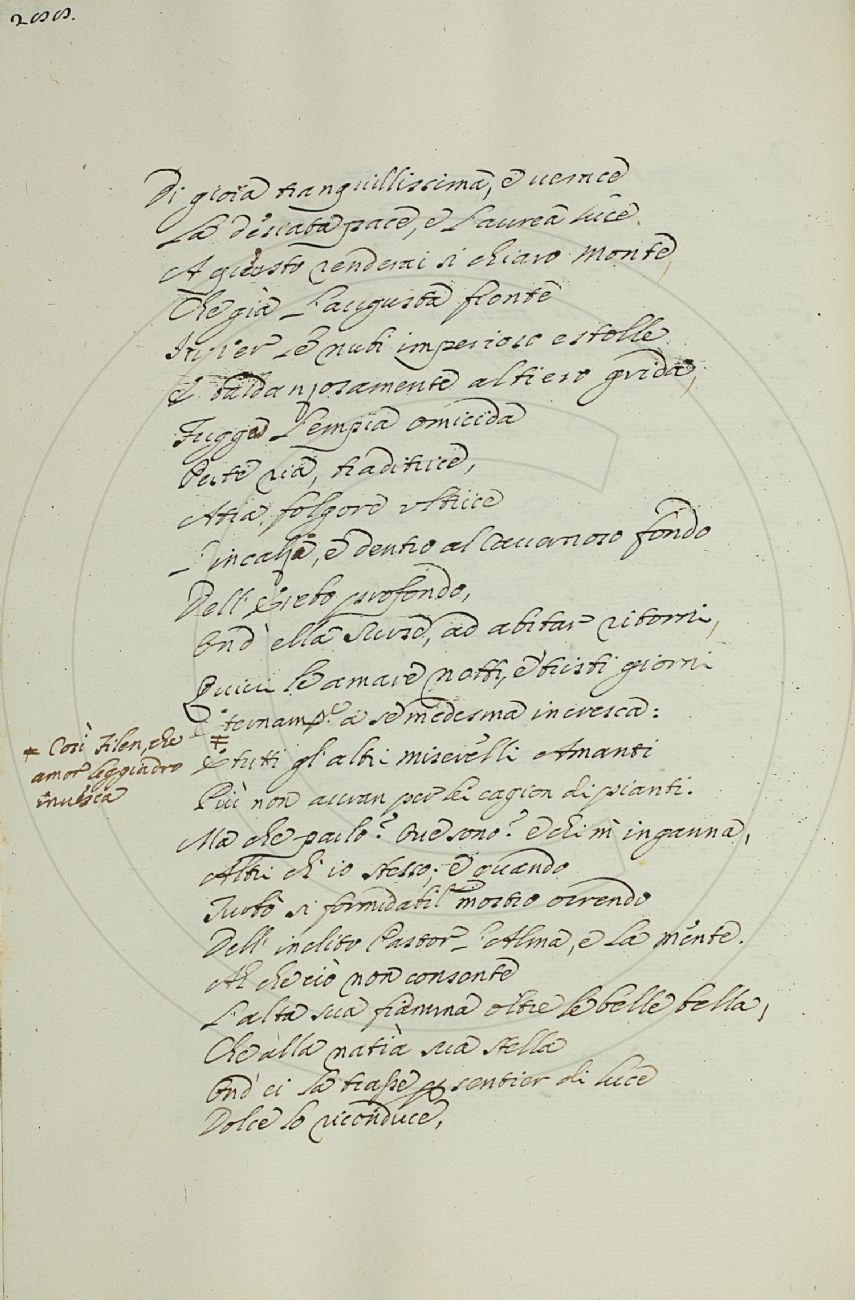 288.
Di gioia tranquillissima, e uernice
La desiata pace, e l'aurea luce
A questo renderai si chiaro Monte,
Che già l'augusta fronte
In uer le nubi imperioso estolle
E baldanzosamente altiero grida,
Fugga l'empia omicida
Peste ria, traditrice,
Atra folgore ultrice
L'incalzi, e dentro al Cauernoso fondo
Dell'Erebo profondo,
Ond'ella surse, ad abitar ritorni,
Quiui le amare notti, e tristi giorni
Eternam.te a se medesma incresca:
+ Così Filen, che
amor leggiadro
inuesca
E tutti gl'altri miserelli Amanti
Più non auran per lei cagion di pianti.
Ma che parlo? Oue sono? e chi m'inganna,
Altri ch'io stesso; e quando
Turbò si formidabil mostro orrendo
Dell'inclito Pastor l'Alma, e la mente.
Ah che ciò non consente
L'alta sua fiamma oltre le belle bella,
Che alla natia sua stella
Ond'ei la trasse per sentier di luce
Dolce lo riconduce,